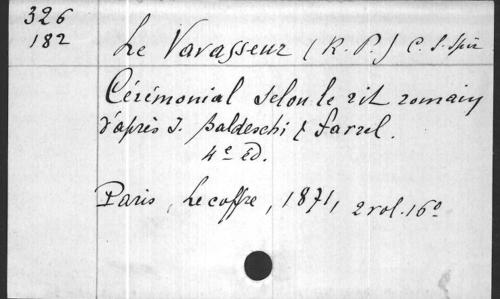 326
182
Le Vavasseur (R. P.) C. S. Sp̃
Cérémonial selon le rit romain
d'après J. Baldeschi & Favrel.
4e Ed.
Paris, Lecoffre, 1871, 2 vol. 16o